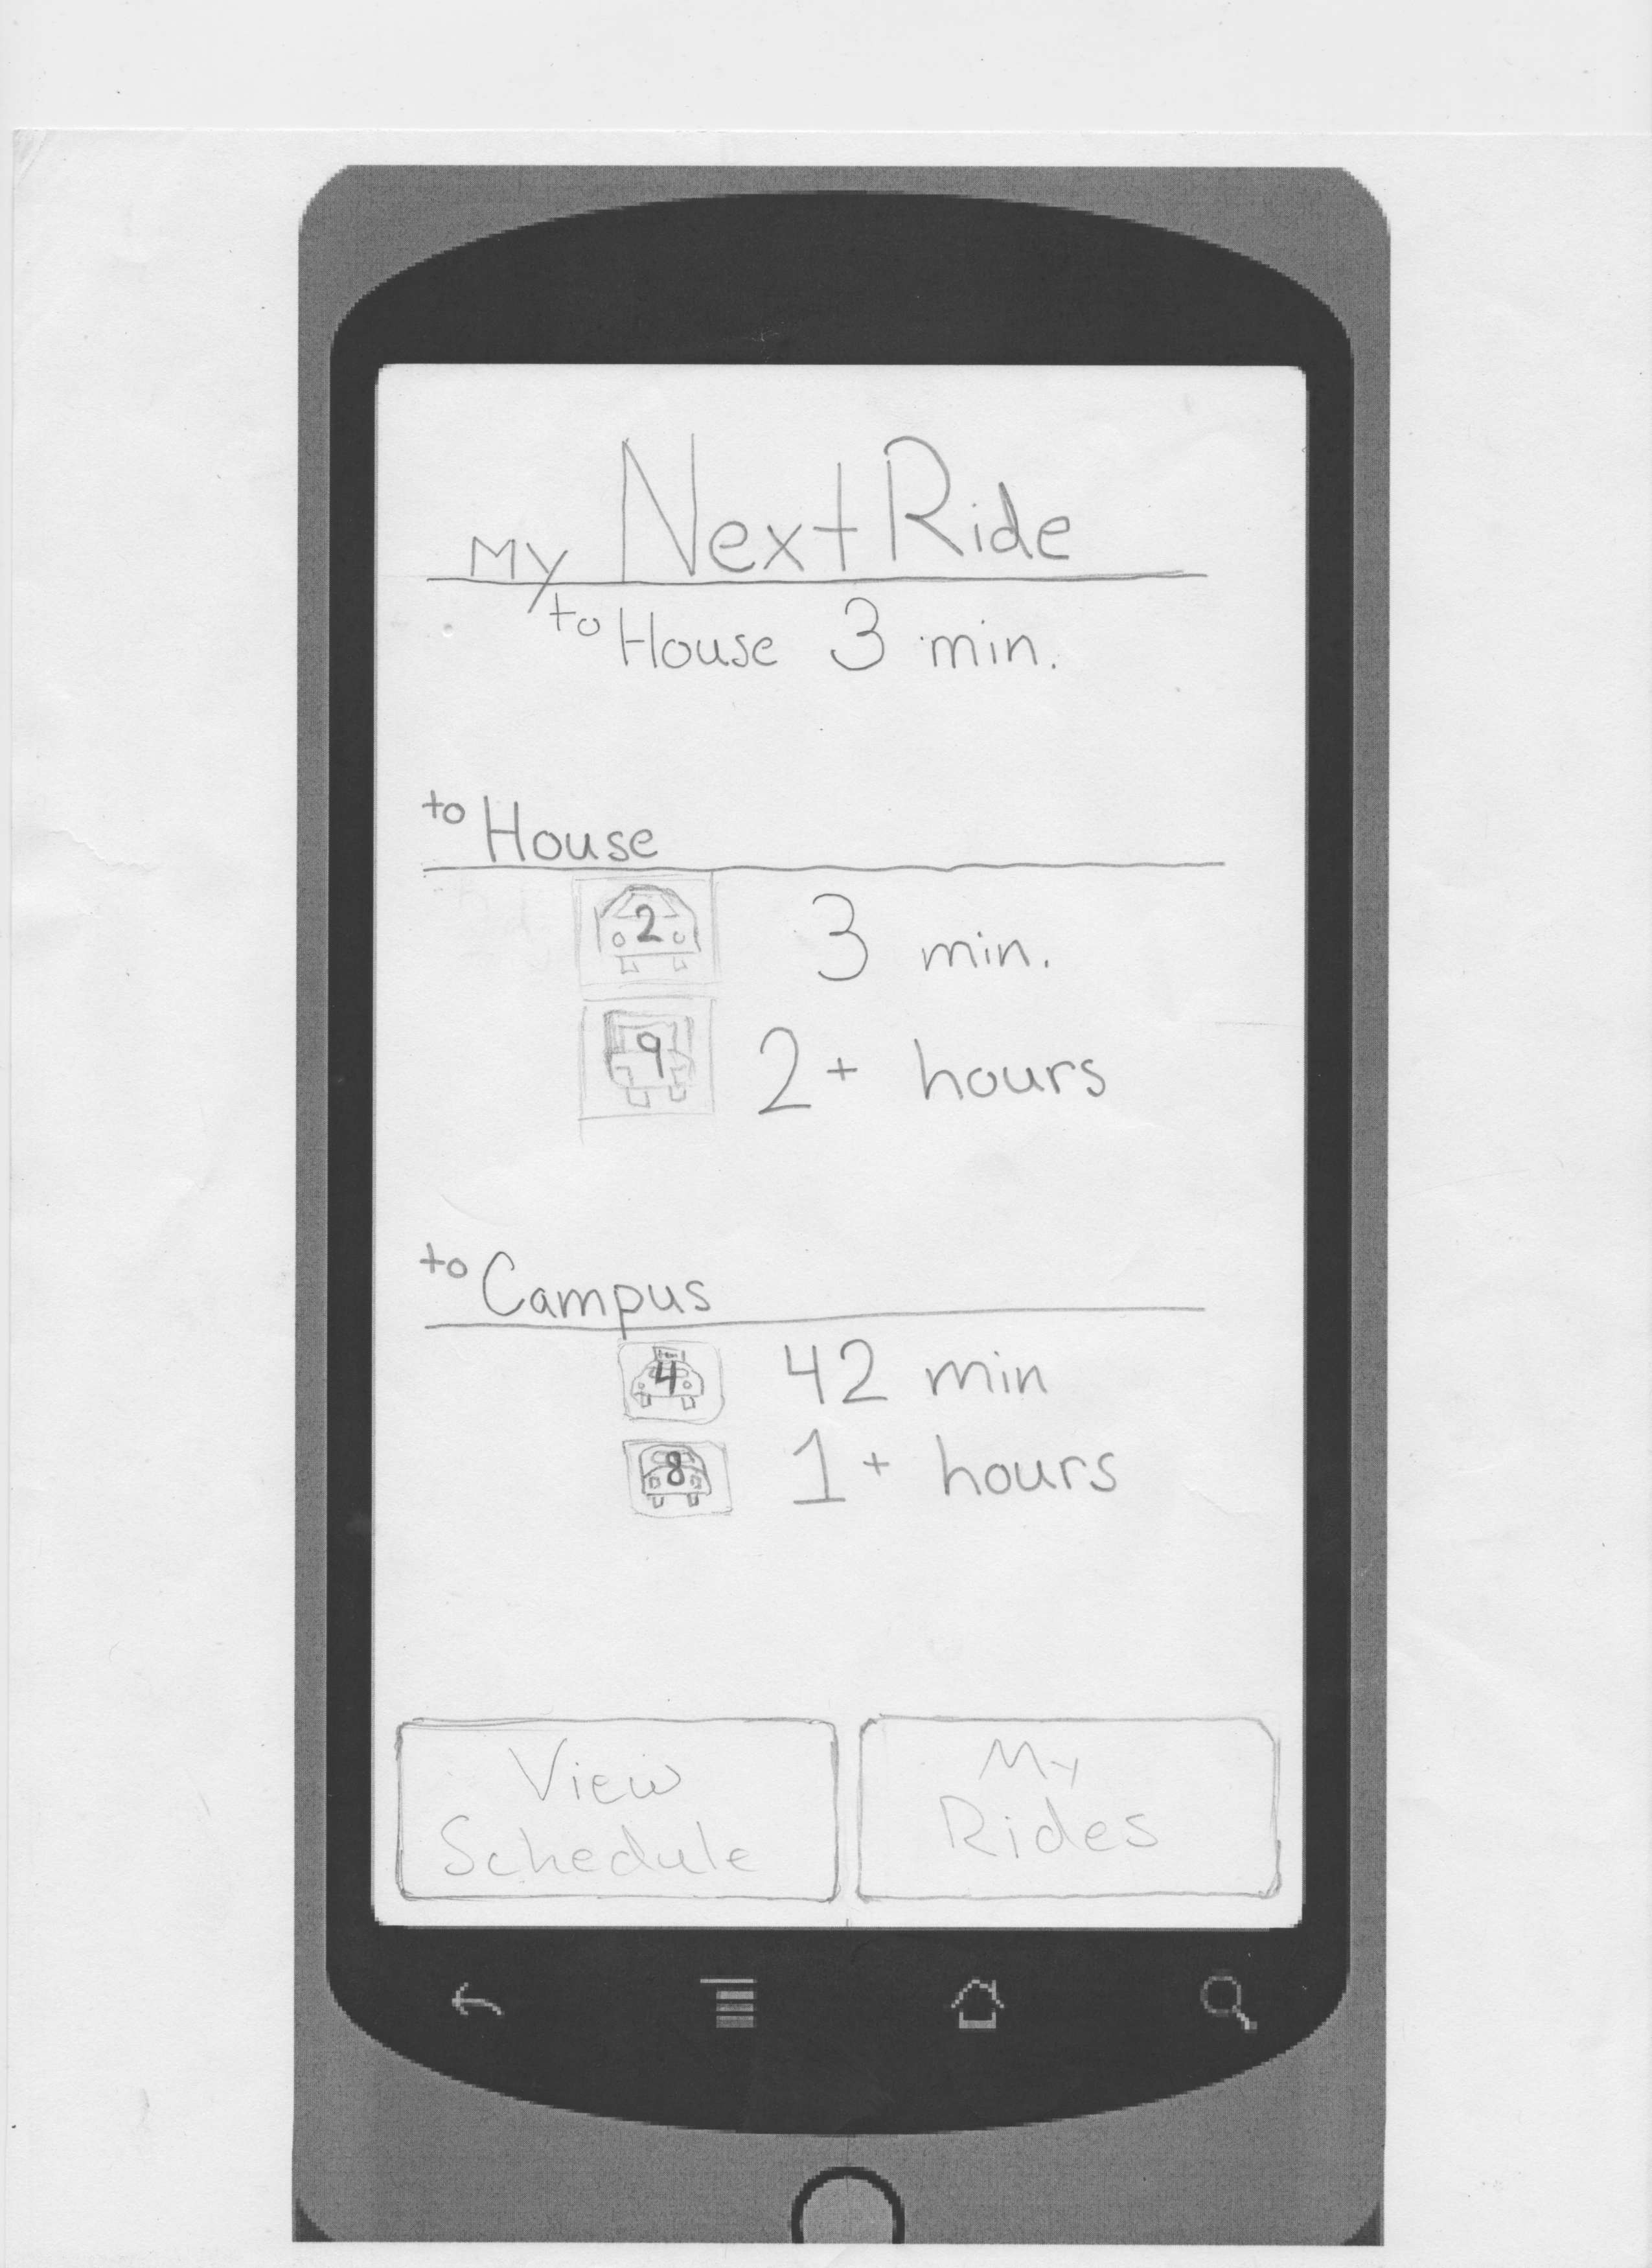 My Next Ride
to House 3 min.
to House
2 3 min.
9 2+ hours
to Campus
4 42 min
8 1+ hours
View Schedule
My Rides